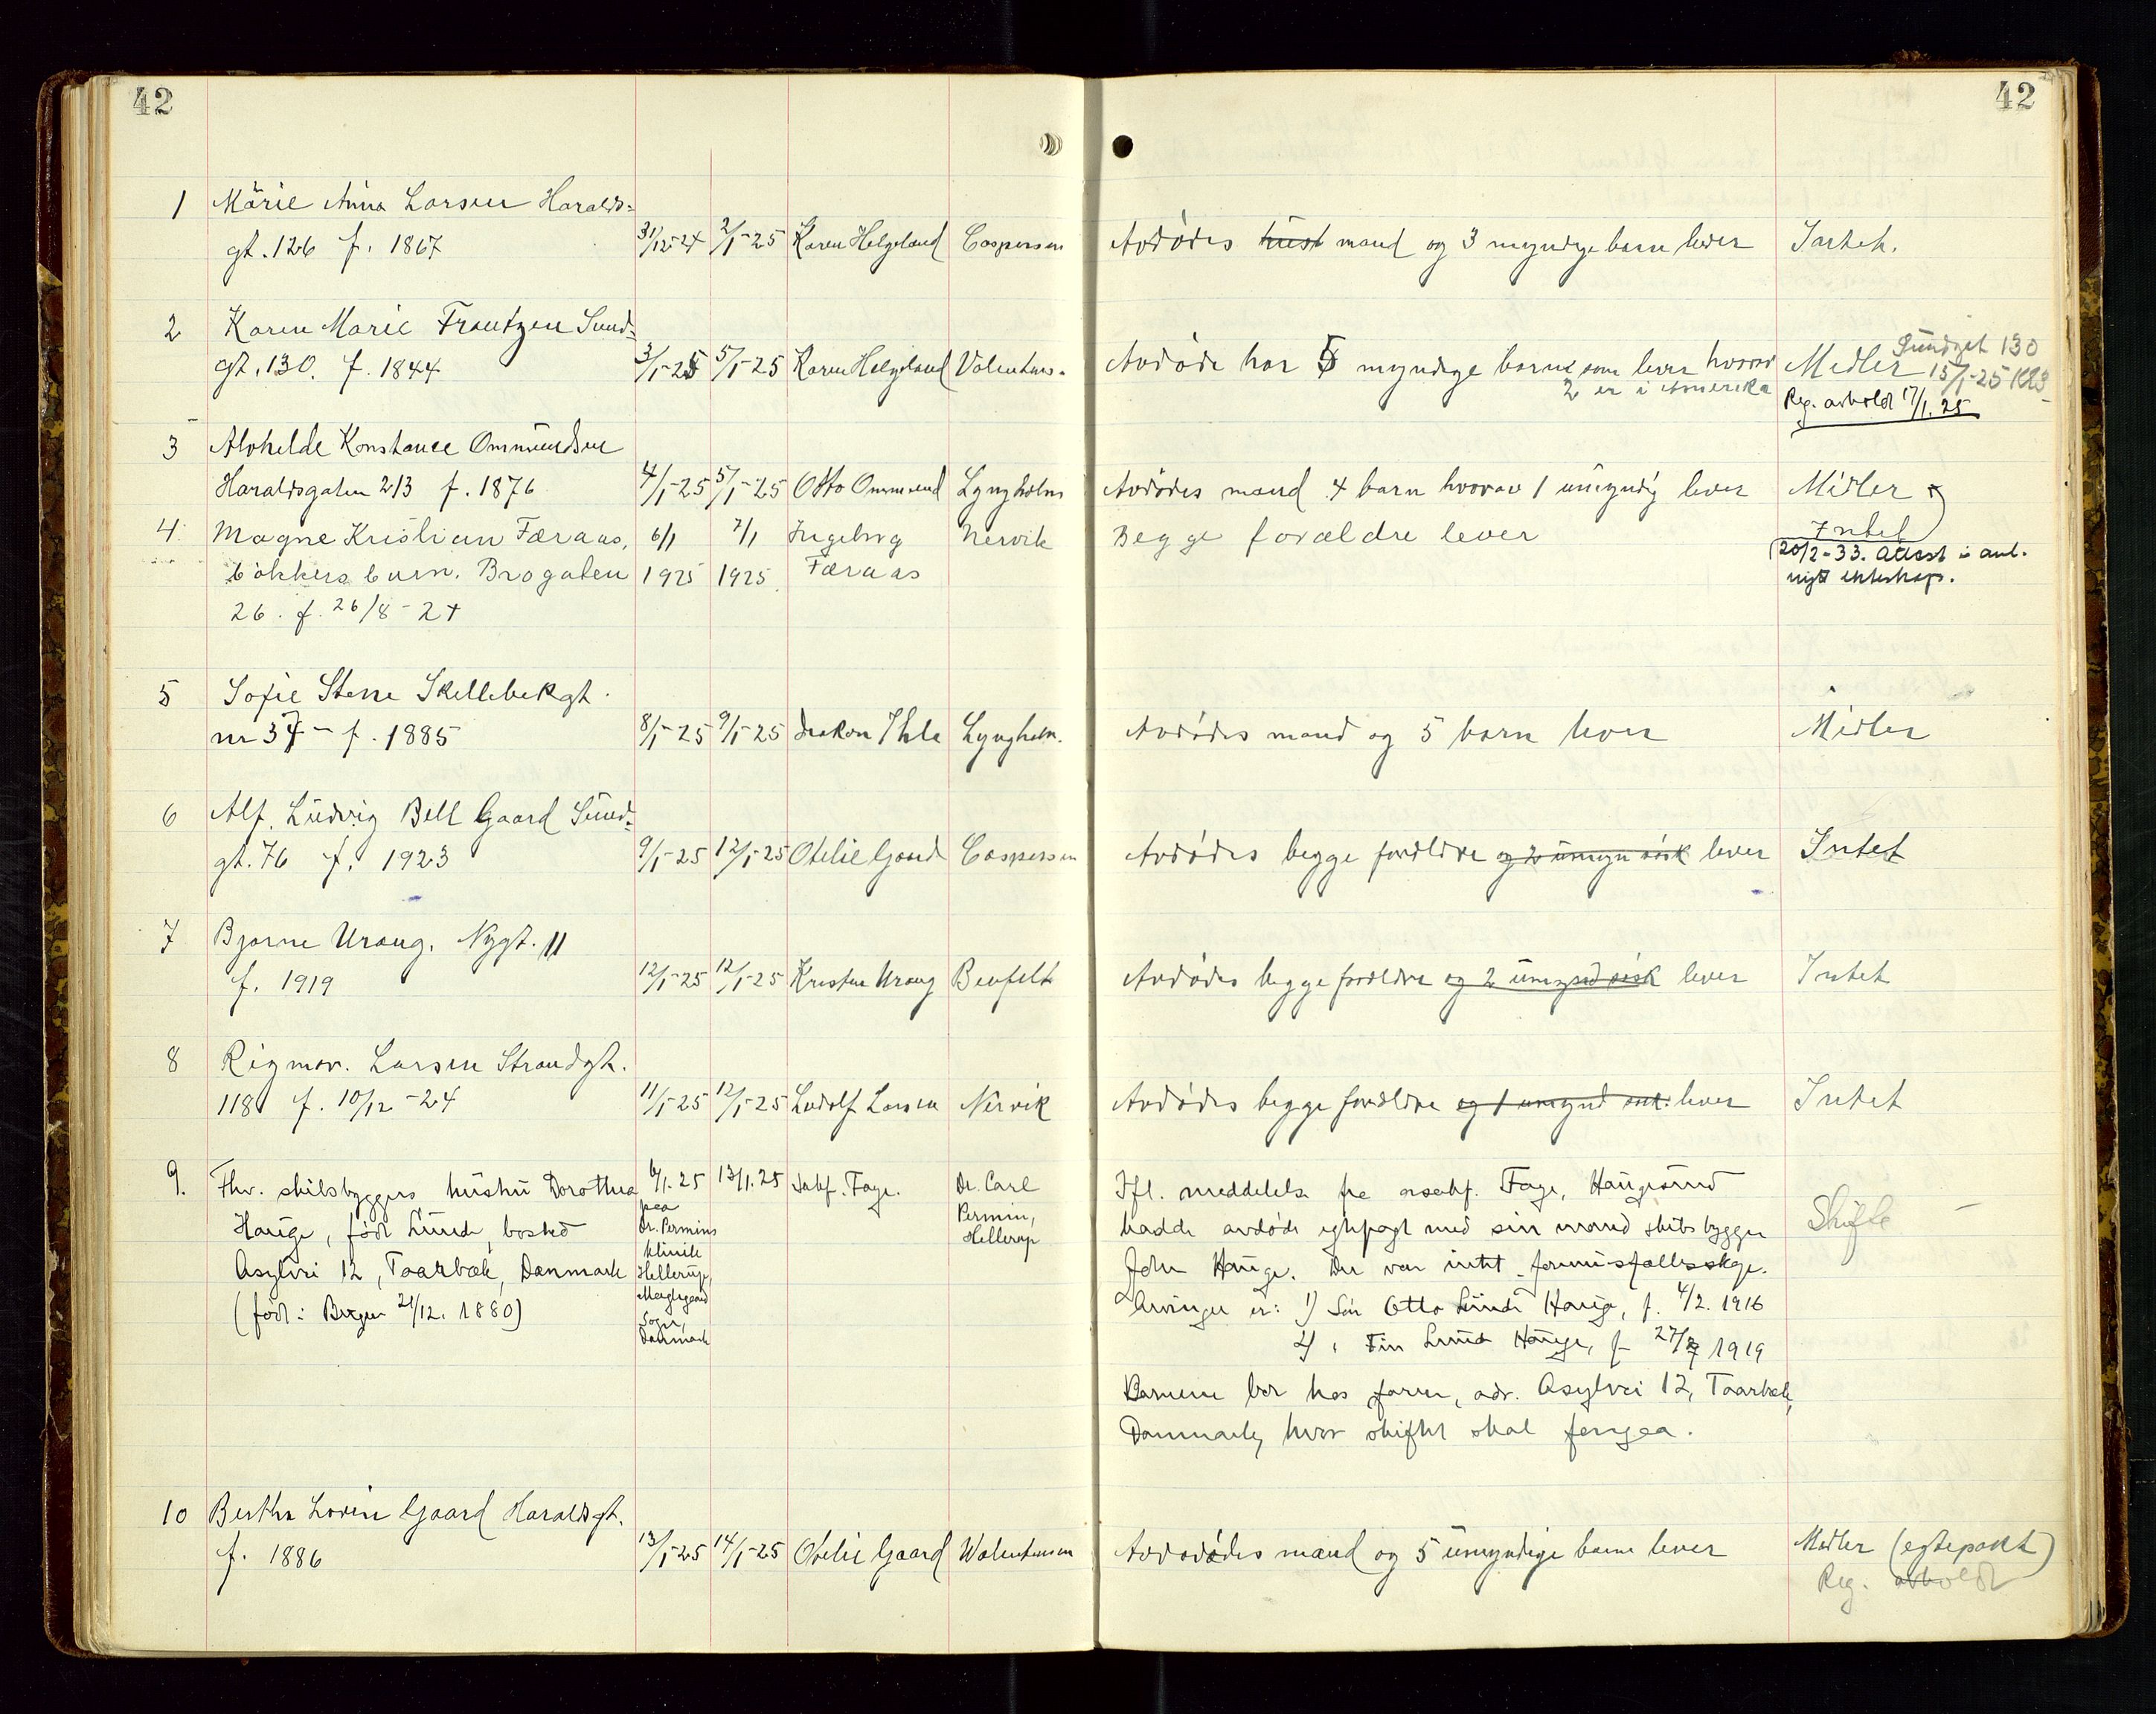 42
42
1 Marie Anna Larsen Haralds=
gt. 126 f. 1867 31/12-24 2/1-25 Karen Helgeland Caspersen Avdødes hust mand og 3 myndige barn lever Intet.
2 Karen Marie Frantzen Sund=
gt. 130. f. 1844 3/1-25 5/1-25 Karen Helgeland Valentins. Avdøde har 5 myndige barn som lever hvorav Midler Sundgt 130
2 er i Amerika 15/1-25
Reg. avholdt 17/1. 25
3 Alvhilde Konstance Ommundsen
Haraldsgaten 213 f. 1876 4/1-25 5/1-25 Otto Ommund Lyngholm Avdødes mand 4 barn hvorav 1 umyndig lever Midler
4. Magne Kristian Færaas, 6/1 7/1 Ingeborg Nervik Begge forældre lever Intet
bökkers barn. Brogaten 1925 1925 Færaas 20/2-33. Attest i anl.
26. f. 26/8-24 nyt ekteskap.
5 Sofie Stene Skillebekgt.
nr 37 - f. 1885 8/1-25 9/1-25 Haakon Ihle Lyngholm. Avdødes mand og 5 barn lever Midler
6 Alf. Ludvig Bell Gaard Sund=
gt. 76 f. 1923 9/1-25 12/1-25 Otelie Gaard Caspersen Avdødes begge foreldre og 2 umyn søsk lever Intet
7 Bjarne Urang. Nygt. 11
f. 1919 12/1-25 12/1-25 Kristine Urang Benfelt Avdødes begge foreldre og 2 umynd søsk lever Intet
8 Rigmor. Larsen Strandgt.
118 f. 10/12-24 11/1-25 12/1-25 Ludolf Larsen Nervik Avdødes begge foreldre og 1 umynd søsk. lever Intet
9. Fhv. skibsbyggers hustru Dorothea 6/1. 25 13/1. 25 sakf. Fage. Dr. Carl Ifl. meddelelse fra orsakf. Fage, Haugesund
paa Permin, Skifte
Hauge, født Lunde, bosted Dr. Permins Hellerup hadde avdøde egtepagt med sin mand skibsbygger
Asylvei 12, Taarbæk, Danmark klinik Hellerup, John Hauge. Der var intet formuesfællesskap.
(født: Bergen 21/12. 1880) Sogn, Danmark Arvinger er: 1) Søn Otto Lunde Hauge, f. 4/2. 1916
2) " Fin Lunde Hauge, f 1919
Barnene bor hos faren, adr. Asylvei 12, Taarbæk,
Danmark, hvor skiftet skal foregaa.
10 Bertha Lovise Gaard Haraldsgt.
f. 1886 13/1-25 14/1-25 Otelie Gaard Walentinsen Avdødes mand og 5 umyndige barn lever Midler (egtepakt)
Reg. avholdt